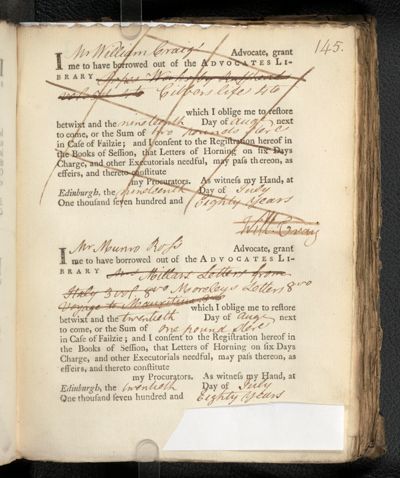 145.
I Mr William Craig Advocate, grant
me to have borrowed out of the ADVOCATES LI-
BRARY
Cibbers lifes 4to
which I oblige me to reſtore
betwixt and the nineteenth Day of augt next
to come, or the Sum of two pounds sters
in Caſe of Failzie; and I conſent to the Regiſtration hereof in
the Books of Seſſion, that Letters of Horning on ſix Days
Charge, and other Executorials needful, may paſs thereon, as
effeirs, and thereto conſtitute
my Procurators. As witneſs my Hand, at
Edinburgh, the nineteenth Day of July
One thouſand ſeven hundred and Eighty Years
Will: Craig
I Mr Munro Roſs Advocate, grant
me to have borrowed out of the ADVOCATES LI-
BRARY Millars Letters from
Italy 3 vol. 8vo Moores Letters 8vo
Voyage to
which I oblige me to reſtore
betwixt and the twentieth Day of augt next
to come, or the Sum of one pound sters
in Caſe of Failzie; and I conſent to the Regiſtration hereof in
the Books of Seſſion, that Letters of Horning on ſix Days
Charge, and other Executorials needful, may paſs thereon, as
effeirs, and thereto conſtitute
my Procurators. As witneſs my Hand, at
Edinburgh, the twentieth Day of July
One thouſand ſeven hundred and Eighty Years